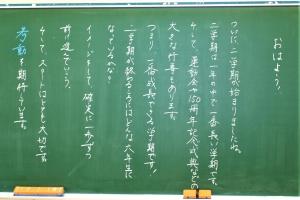 おはよう。
ついに二学期が始まりましたね。
二学期は一年の中で一番長い学期です。
そして、運動会や150周年記念式典などの
大きな行事もあります。
つまり、一番成長できる学期です！
二学期が終わるころにはどんな六年生に
なっているかな。
イメージをして確実に一歩ずつ
前に進んでいこう。
そして、スタートはとても大切です。
考動を期待しています。